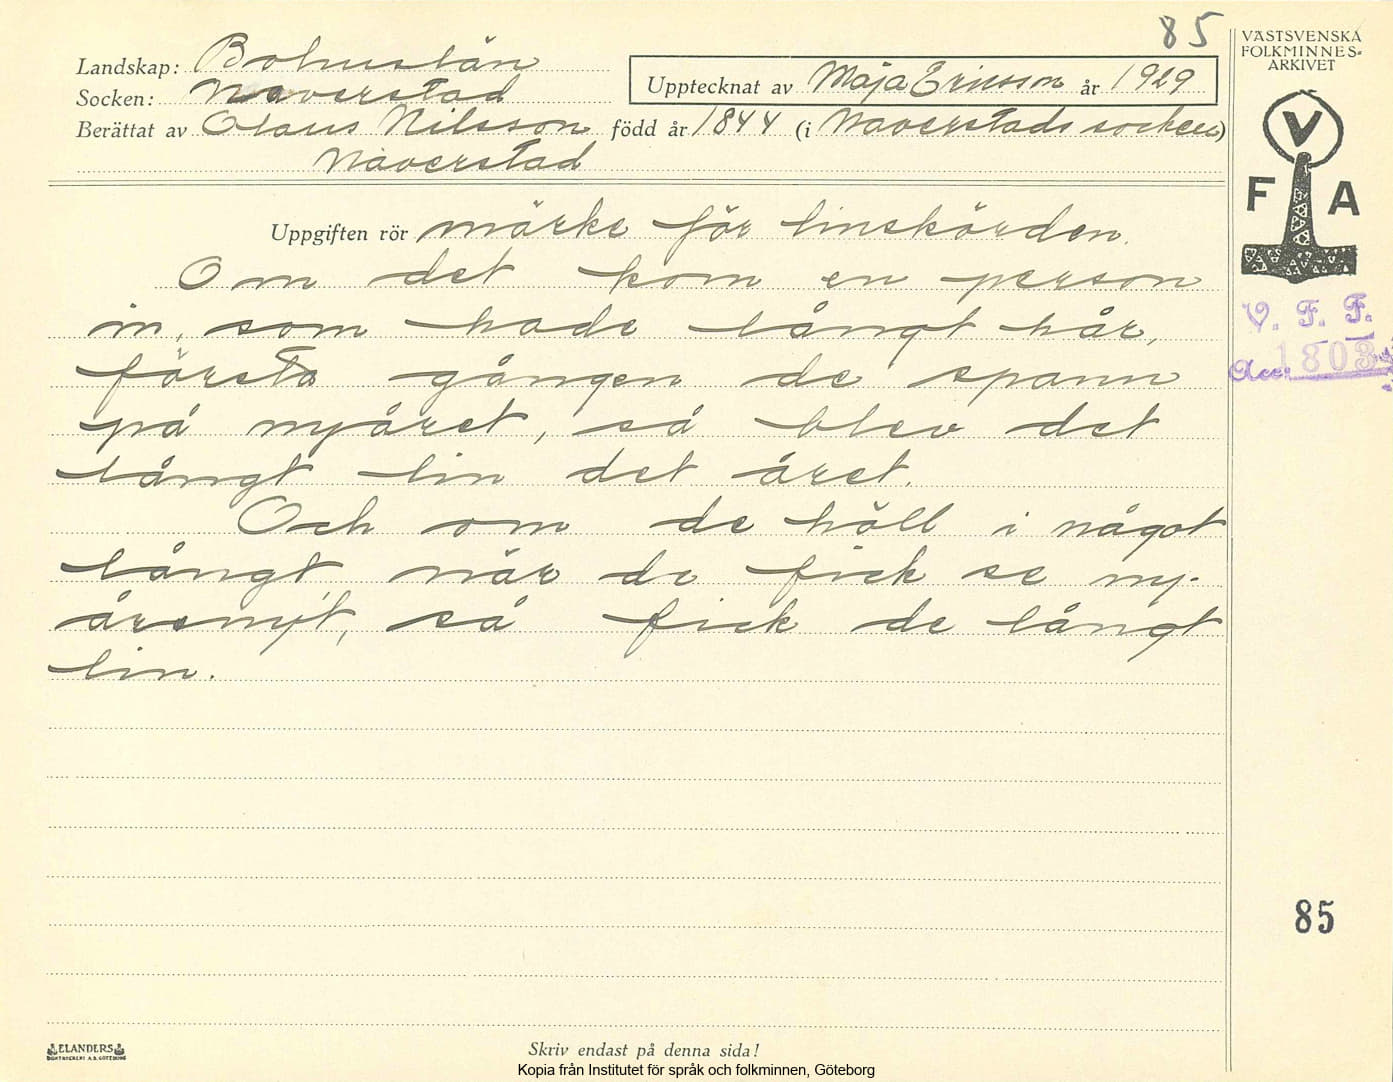 85
VÄSTSVENSKA
FOLKMINNES-
ARKIVET
Landskap: Bohuslän
Socken: Naverstad
Upptecknat av Maja Ericsson år 1929
Berättat av Olaus Nilsson född år 1844 (i Naverstads socken)
Naverstad
V
F A
Uppgiften rör märke för linskörden.
Om det kom en person
in, som hade långt hår,
första gången de spann
på nyåret, så blev det
långt lin det året.
Och om de höll i något
långt när de fick se ny-
årsnyt, så fick de långt
lin.
V. F. F.
Acc. 1803
85
ELANDERS
BOKTRYCKERI A.B. GÖTEBORG
Skriv endast på denna sida!
Kopia från Institutet för språk och folkminnen, Göteborg